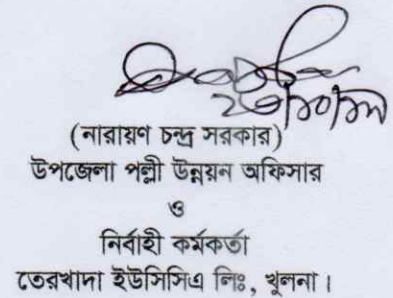 (নারায়ণ চন্দ্র সরকার)
উপজেলা পল্লী উন্নয়ন অফিসার
ও
নির্বাহী কর্মকর্তা
তেরখাদা ইউসিসিএ লিঃ, খুলনা।